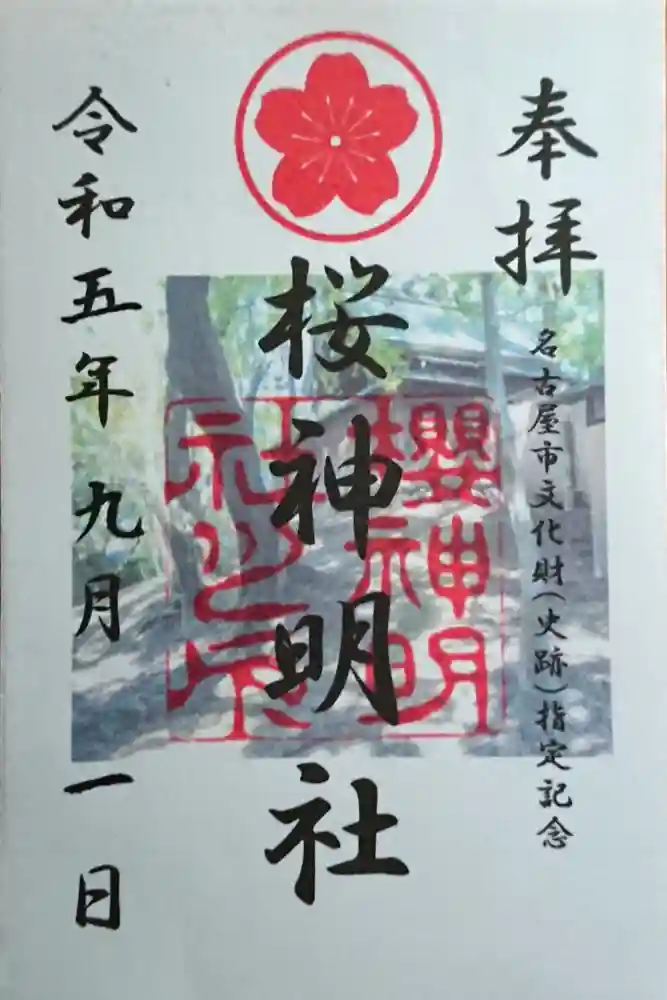 奉拝
名古屋市文化財(史跡)指定記念
桜神明社
櫻神明
社之
令和五年九月一日